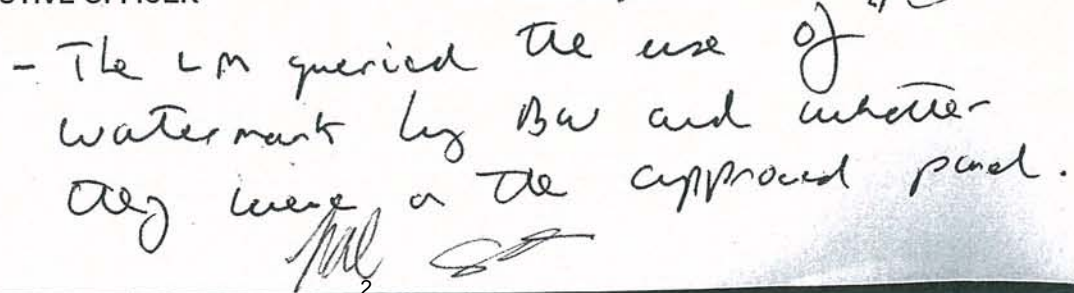 - The LM queried the use of
watermark by BW and whether
they were on the approved panel.
2